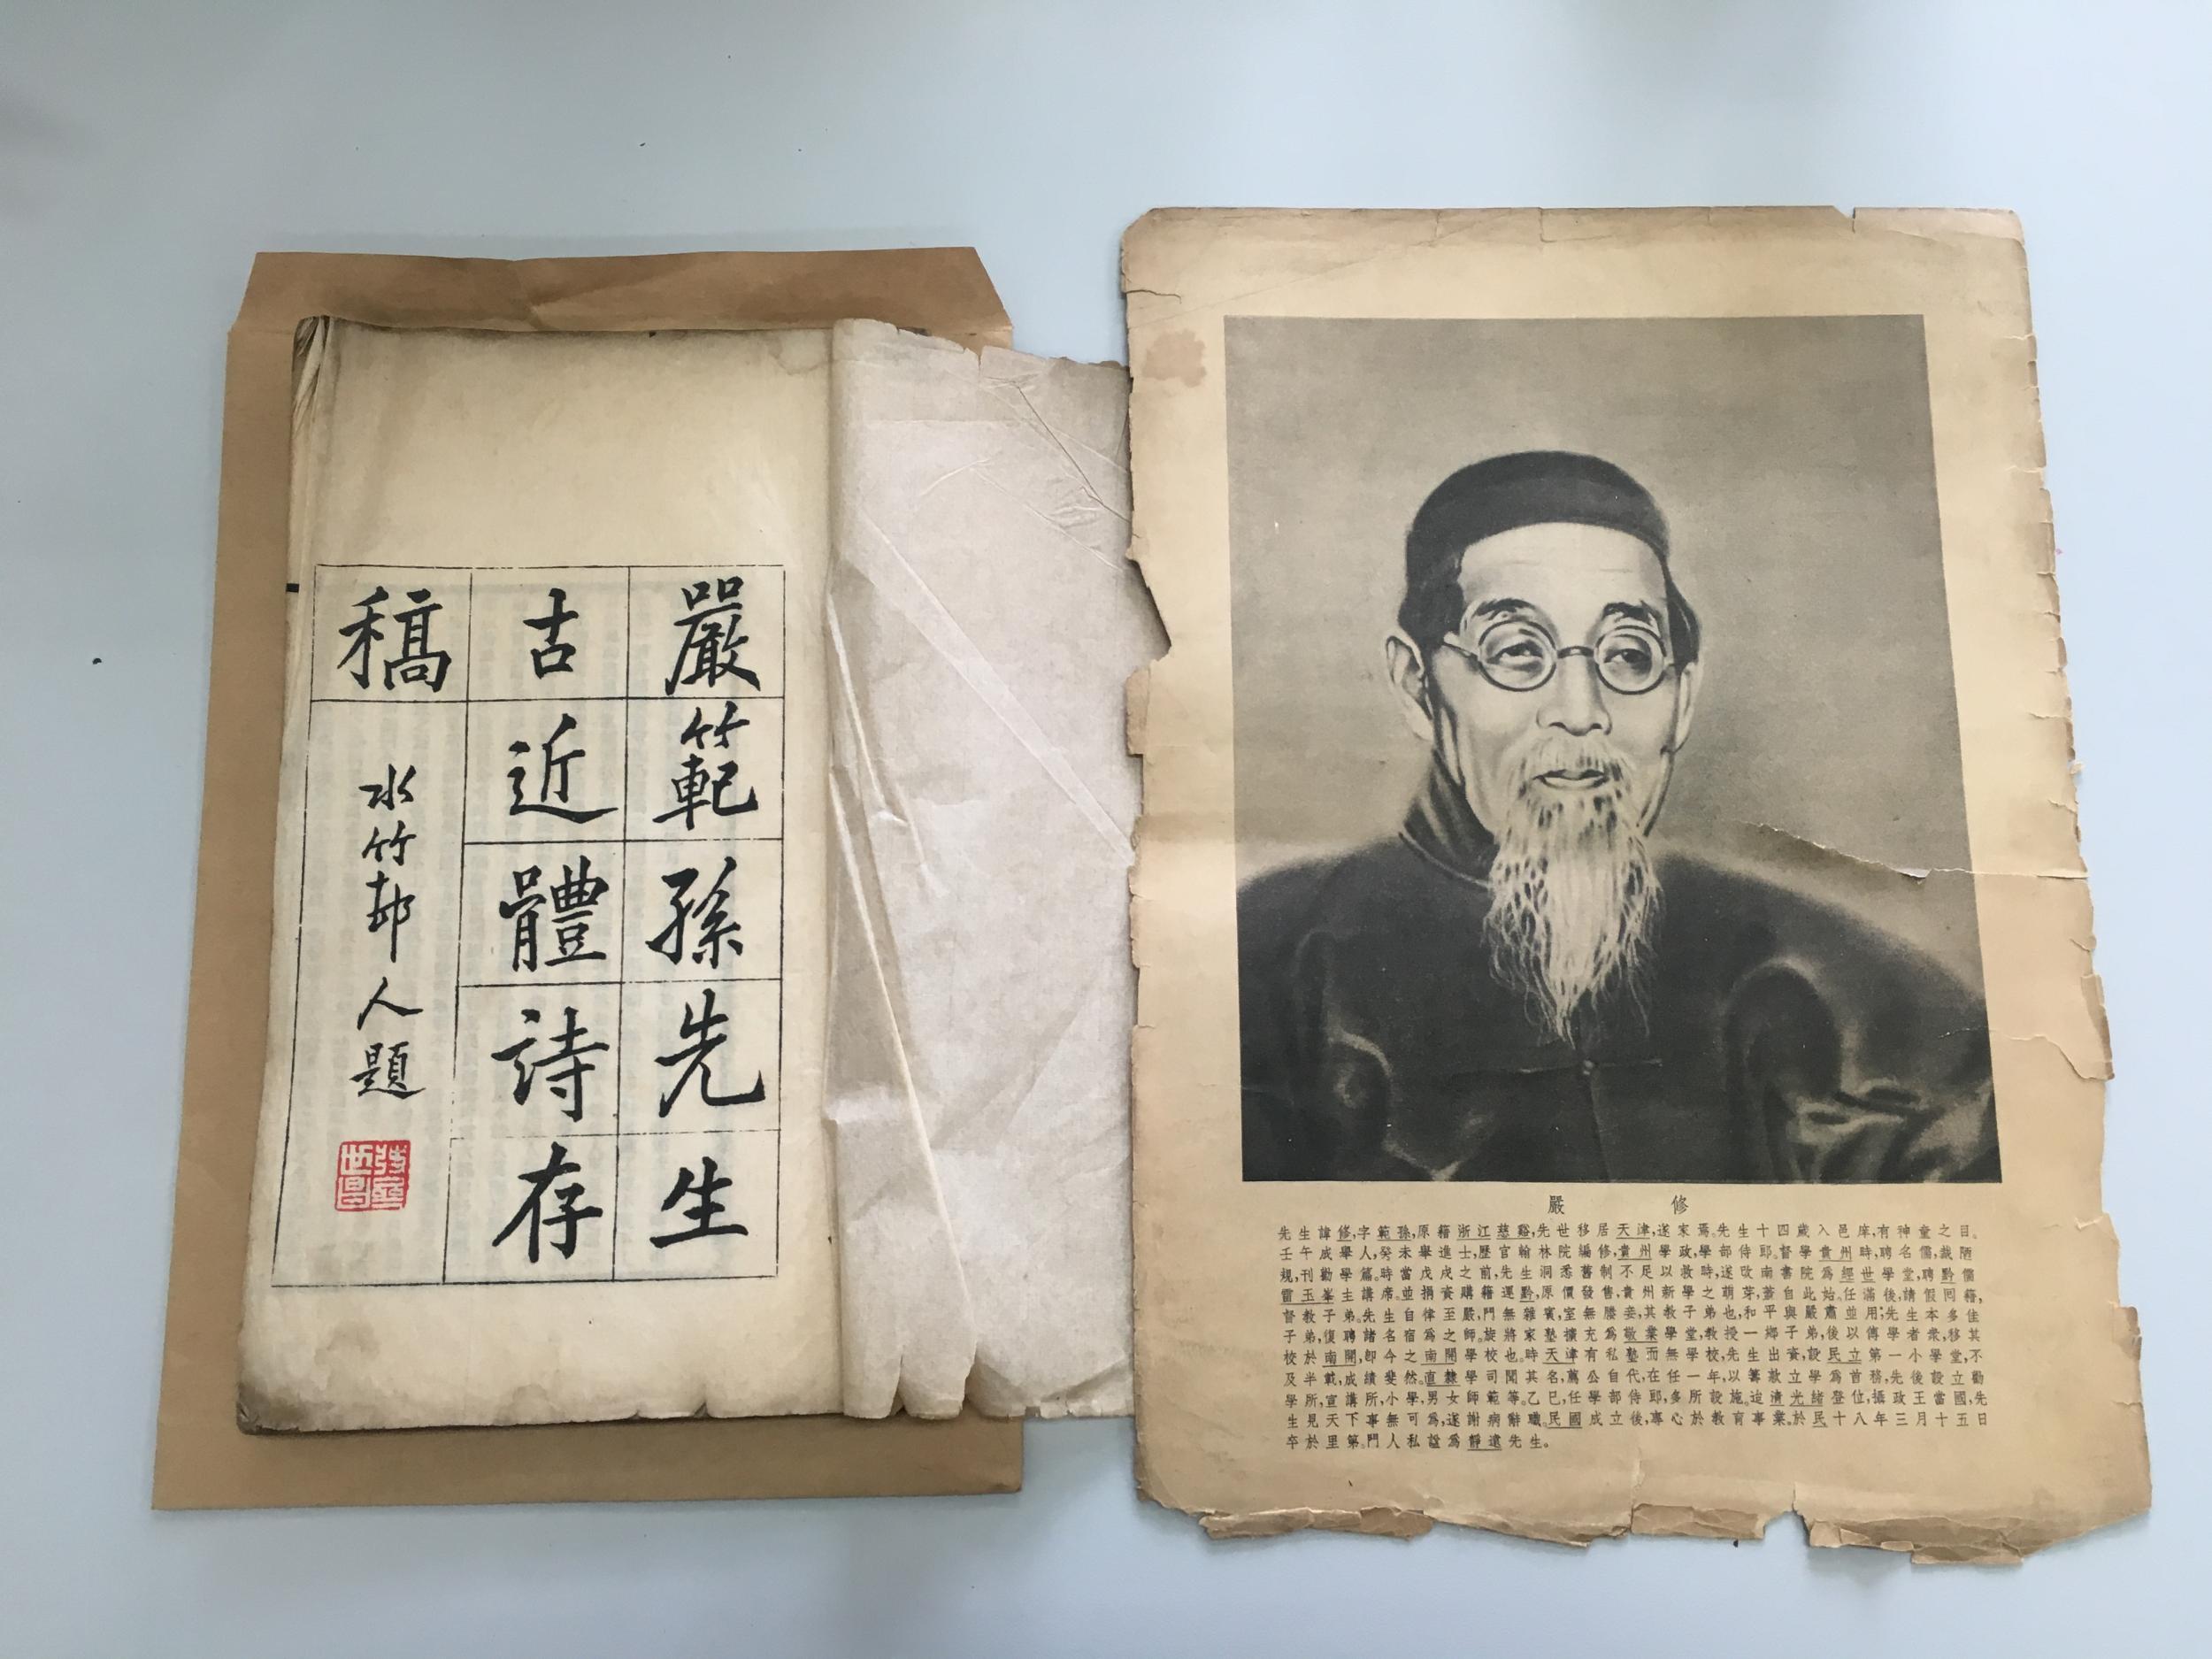 嚴範孫先生
古近體詩存
稿
水竹邨人題
嚴 修
先生諱修,字範孫,原籍浙江慈谿,先世移居天津,遂家焉。先生十四歲入邑庠,有神童之目。
壬午成舉人,癸未舉進士,歷官翰林院編修,貴州學政,學部侍郎。督學貴州時,聘名儒,裁陋
規,刊勸學篇。時當戊戌之前,先生洞悉舊制不足以救時,遂改南書院為經世學堂,聘黔儒
雷玉峯主講席。並捐資購籍運黔,原價發售,貴州新學之萌芽,蓋自此始。任滿後,請假回籍,
督教子弟。先生自律至嚴,門無雜賓,室無媵妾,其教子弟也,和平與嚴肅並用;先生本多佳
子弟,復聘諸名宿為之師。旋將家塾擴充為敬業學堂,教授一鄉子弟,後以傳學者衆,移其
校於南開,卽今之南開學校也。時天津有私塾而無學校,先生出資,設民立第一小學堂,不
及半載,成績斐然。直隸學司聞其名,薦公自代,在任一年,以籌款立學為首務,先後設立勸
學所,宣講所,小學,男女師範等。乙巳,任學部侍郎,多所設施。迨清光緒登位,攝政王當國,先
生見天下事無可為,遂謝病辭職。民國成立後,專心於教育事業。於民十八年三月十五日
卒於里第。門人私諡為靜遠先生。